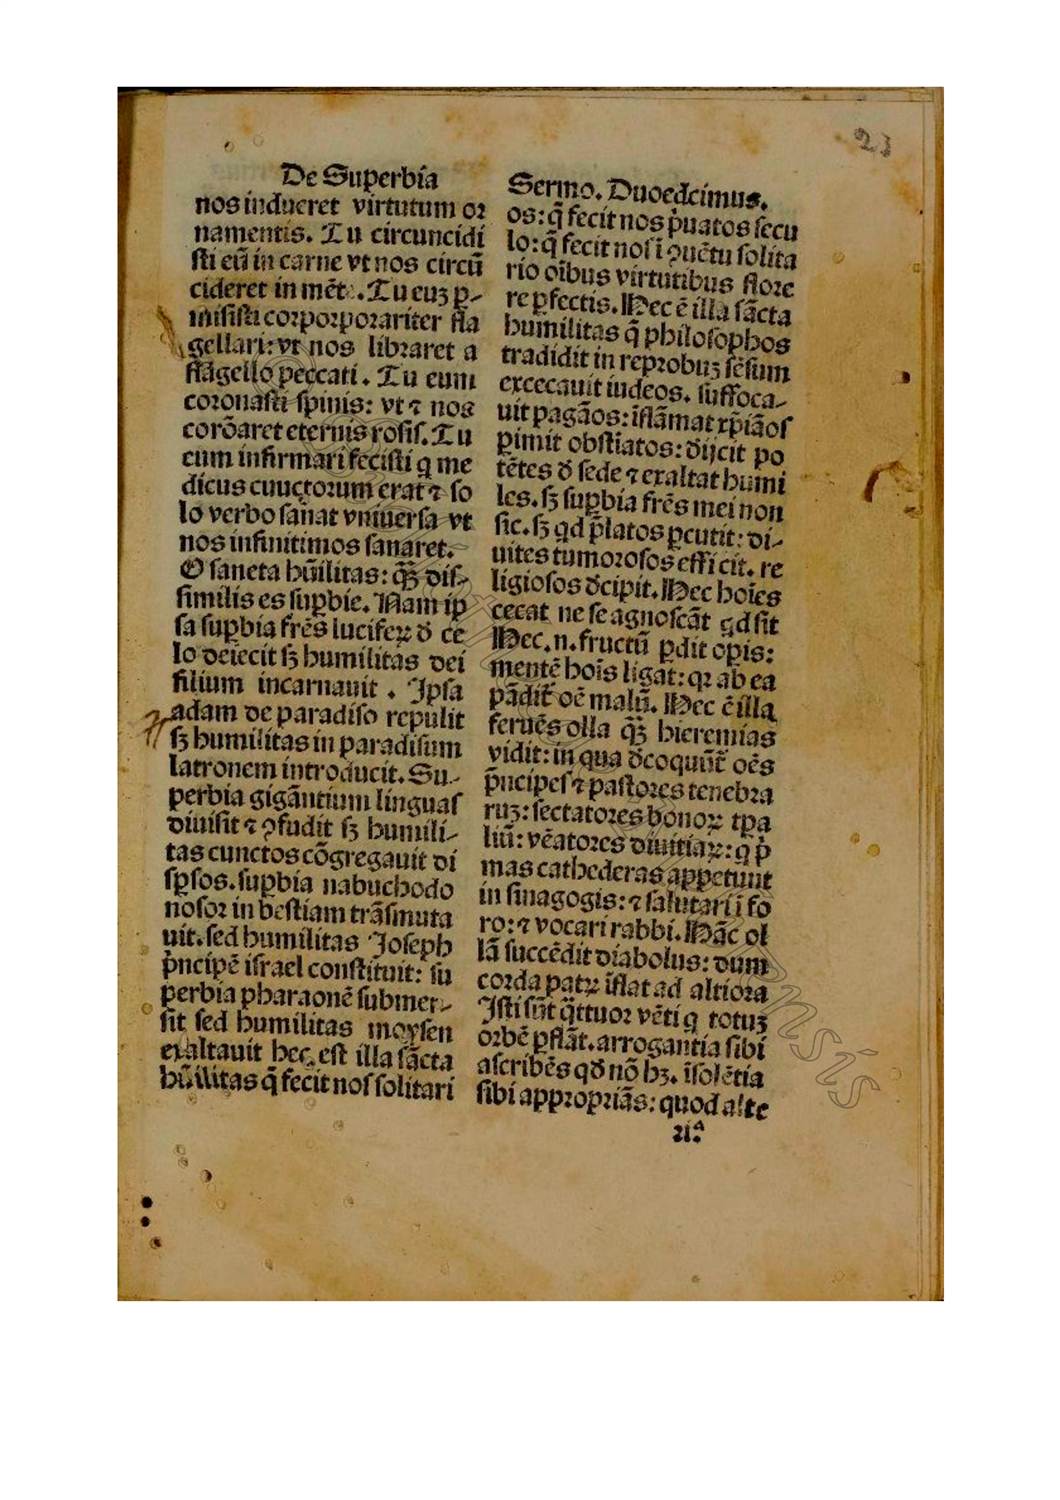 23
De Superbia
nos indueret virtutum oꝛ
namentis. Tu circuncidi
sti eũ in carne vt nos circũ
cideret in mẽt. Tu euʒ ꝑ-
misisti coꝛpoꝛpoꝛariter fla
gellari: vt nos libꝛaret a
flagello peccati. Tu eum
coꝛonasti spinis: vt ⁊ nos
coꝛõaret eternis rosis. Tu
eum infirmari fecisti q me
dicus cuuctoꝛum erat ⁊ so
lo verbo sanat vniuersa vt
nos infinitimos sanaret.
O sancta hũilitas: q̃ʒ dis-
similis es suꝑbie. Nam ip
sa suꝑbia frẽs luciferꝝ ꝺ ce
lo deiecit sʒ humilitas dei
filium incarnauit. Ipsa
adam de paradiso repulit
sʒ humilitas in paradisum
latronem introducit. Su-
perbia gigãntium linguas
diuisit ⁊ ꝯfudit sʒ humili-
tas cunctos cõgregauit di
sꝑsos. suꝑbia nabuchodo
nosoꝛ in bestiam trãsmuta
uit. sed humilitas Ioseph
p̃ncipẽ israel constituit: su
perbia pharaonẽ submer-
sit sed humilitas moysen
exaltauit hec est illa sãcta
hũilitas q̃ fecit nos solitari
Sermo. Duoedcimus.
os: q̃ fecit nos p̃uatos secu
lo: q̃ fecit nos ĩ ꝯuẽtu solita
rio oĩbus virtutibus floꝛe
re ꝑfectis. Hec ẽ illa sãcta
humilitas q̃ philosophos
tradidit in repꝛobuʒ sẽsum
excecauit iudeos. suffoca-
uit pagãos: ĩflãmat xp̃iãos
ꝑimit obstiatos: ꝺijcit po
tẽtes ꝺ sede ⁊ exaltat humi
les. sʒ suꝑbia frẽs mei non
sic. sʒ qd p̃latos ꝑcutit: di-
uites tumoꝛosos efficit. re
ligiosos ꝺcipit. Hec hoĩes
cecat ne se agnoscãt qd sit
Hec. n. fructũ ꝑdit oꝑis:
mentẽ hoĩs ligat: qꝛ ab ea
pãdit̃ oẽ malũ. Hec ẽ illa
feruẽs olla q̃ʒ hieremias
vidit: in qua ꝺcoquũt̃ oẽs
p̃ncipes ⁊ pastoꝛes tenebꝛa
ruʒ: sectatoꝛes honoꝝ tꝑa
liũ: vẽatoꝛes diuitiaꝝ: q p̃
mas cathederas appetunt
in sinagogis: ⁊ salutari ĩ fo
ro: ⁊ vocari rabbi. Hãc ol
lã succẽdit diabolus: dum
coꝛda patꝝ ĩflat ad altioꝛa
Isti sũt q̃ttuoꝛ vẽti q totuʒ
oꝛbẽ ꝑflãt. arrogantia sibi
ascribẽs qđ nõ hʒ. ĩsolẽtia
sibi appꝛopꝛiãs: quod alte
ri.ª